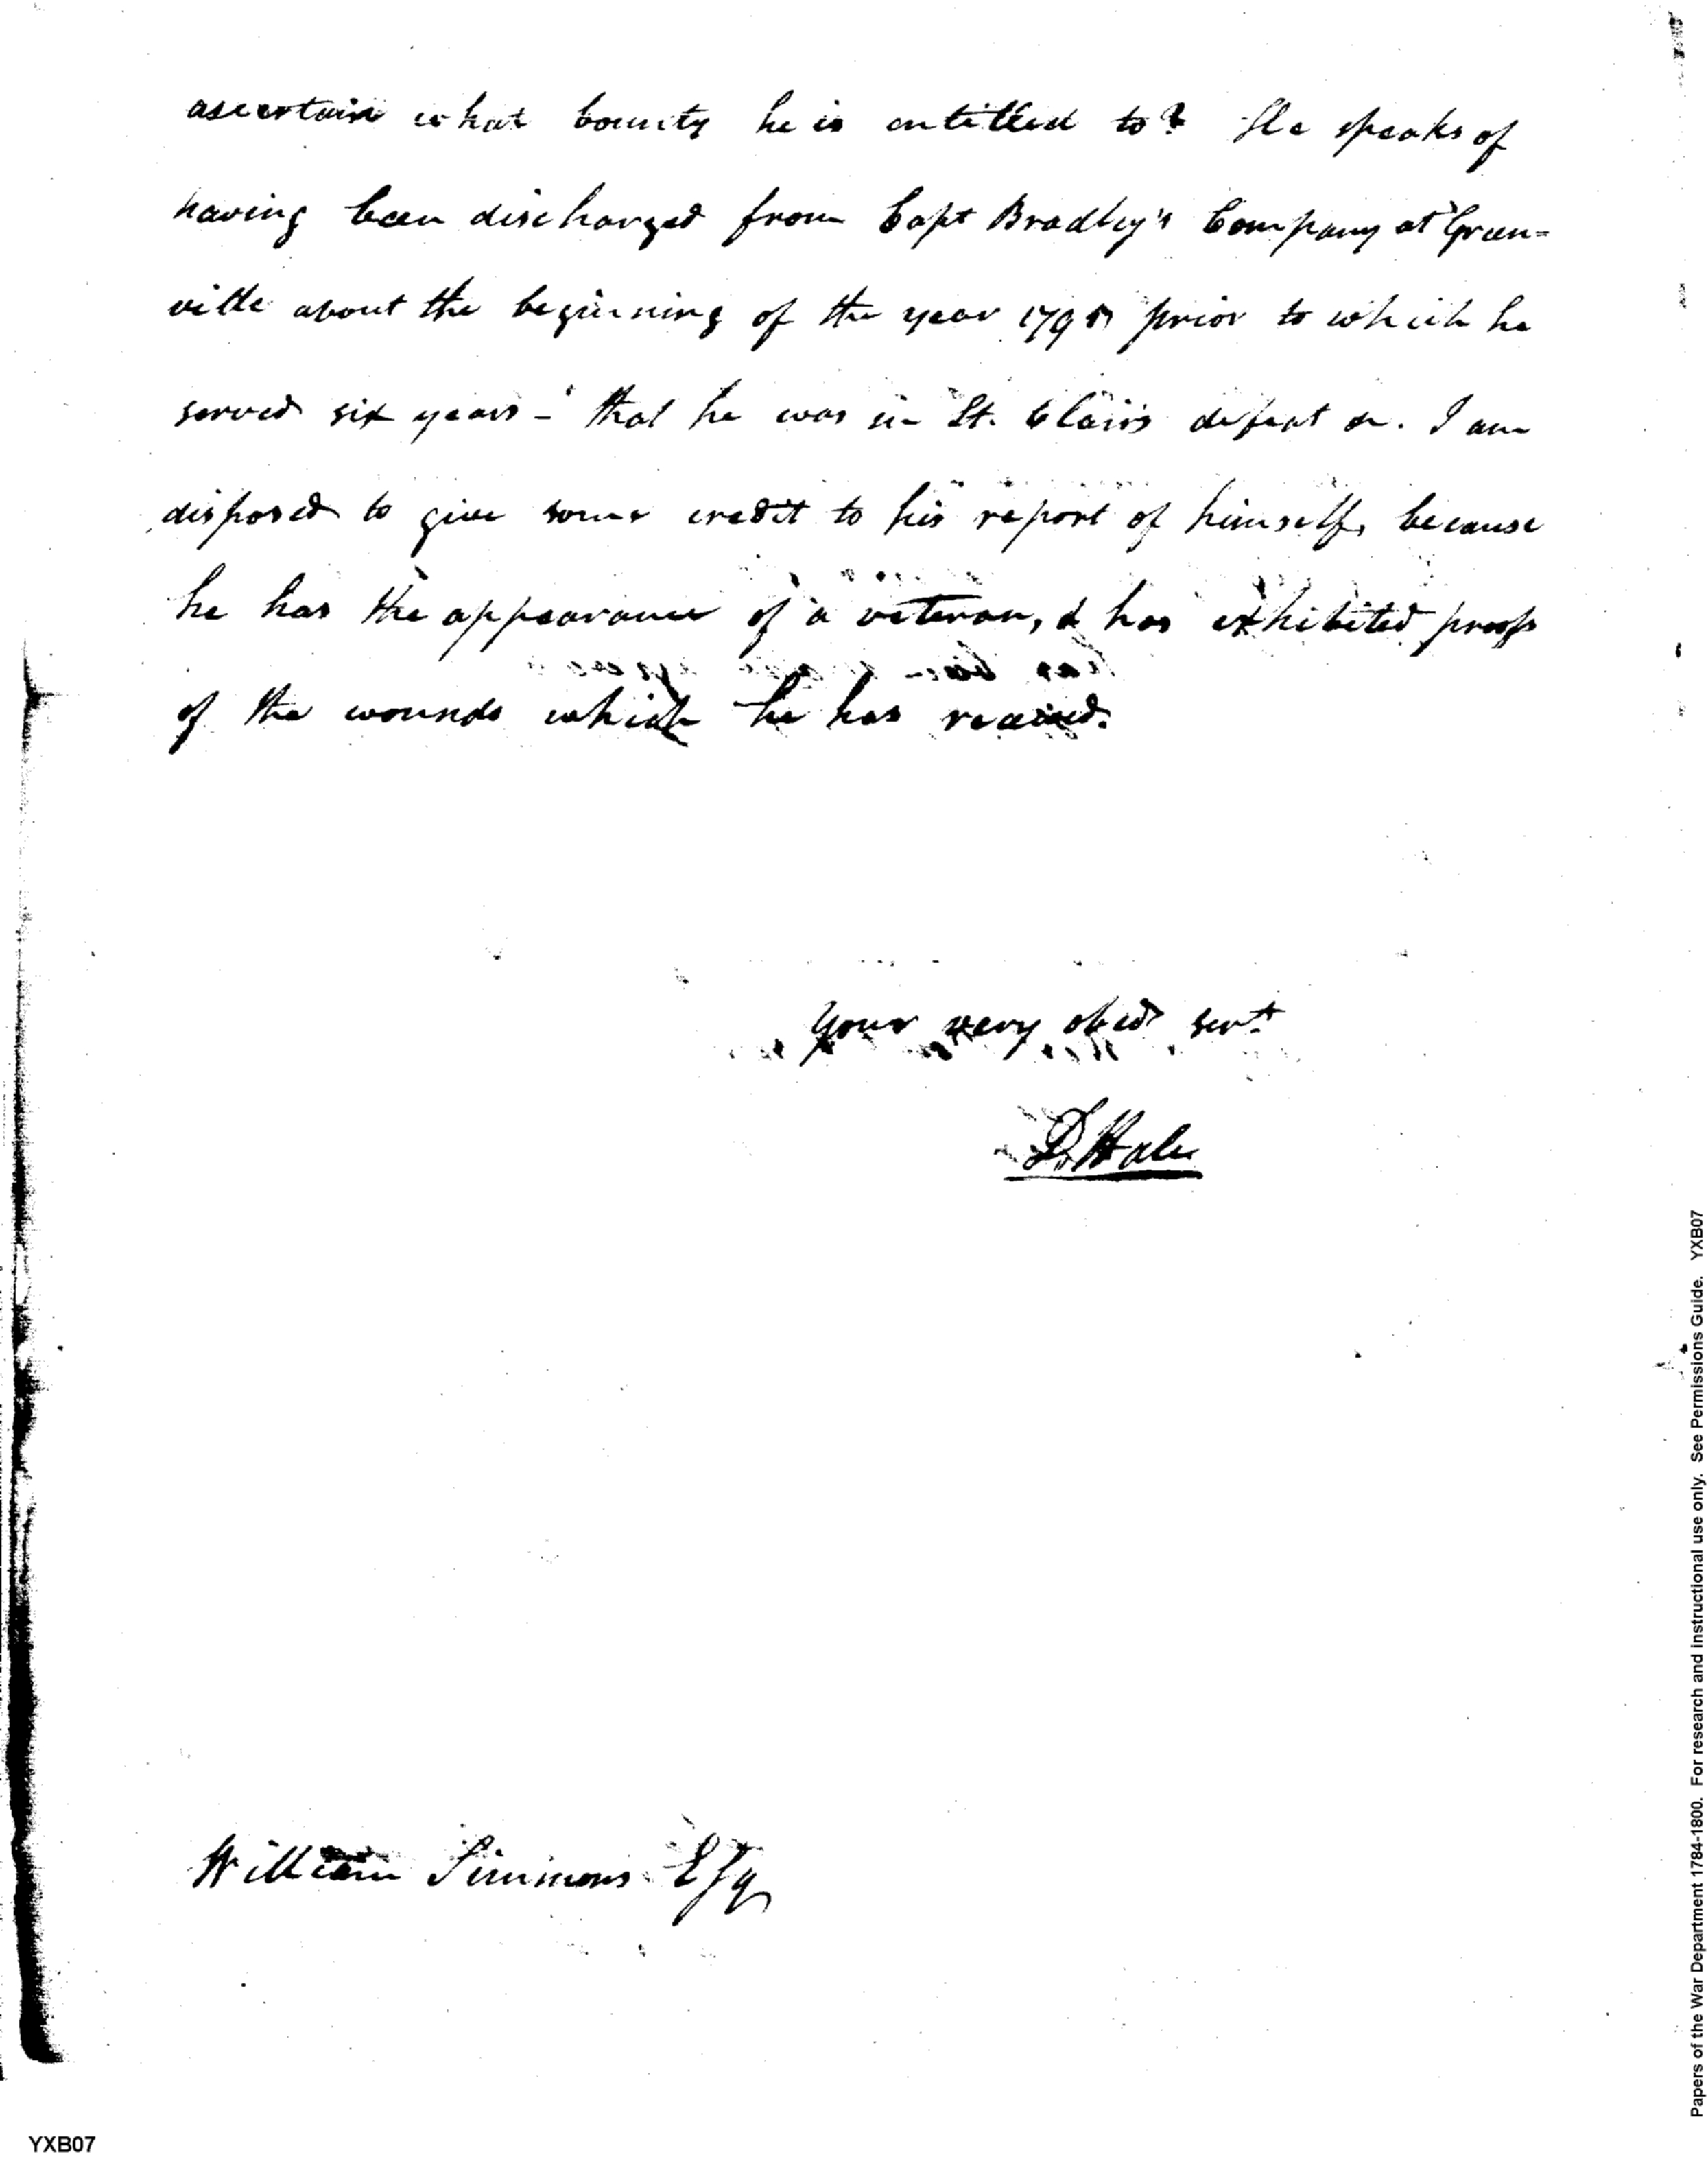 ascertain what bounty he is entitled to? He speaks of
having been discharged from Capt Bradley's Company at Green=
ville about the beginning of the year 1795 prior to which he
served six years - that he was in St. Clairs defeat &c. I am
disposed to give some credit to his report of himself, because
he has the appearance of a veteran, & has exhibited proofs
of the wounds which he has received.
Your very obed servt
D. Hale
William Simmons Esq
YXB07
Papers of the War Department 1784-1800. For research and instructional use only. See Permissions Guide. YXB07